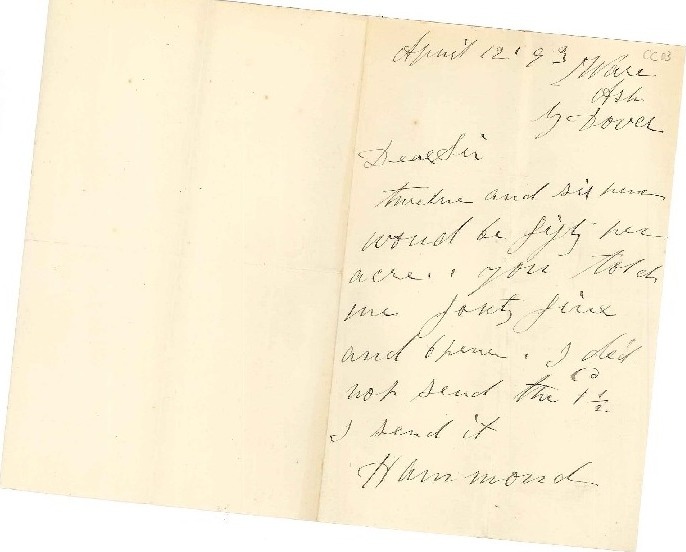 CC13
April 12 '93
Ware
Ash
Dover
Dear Sir
twelve and six pence
would be fifty per
acre. you told
me forty five
and 6 pence. I did
not send the 1 1/2.
I send it
Hammond